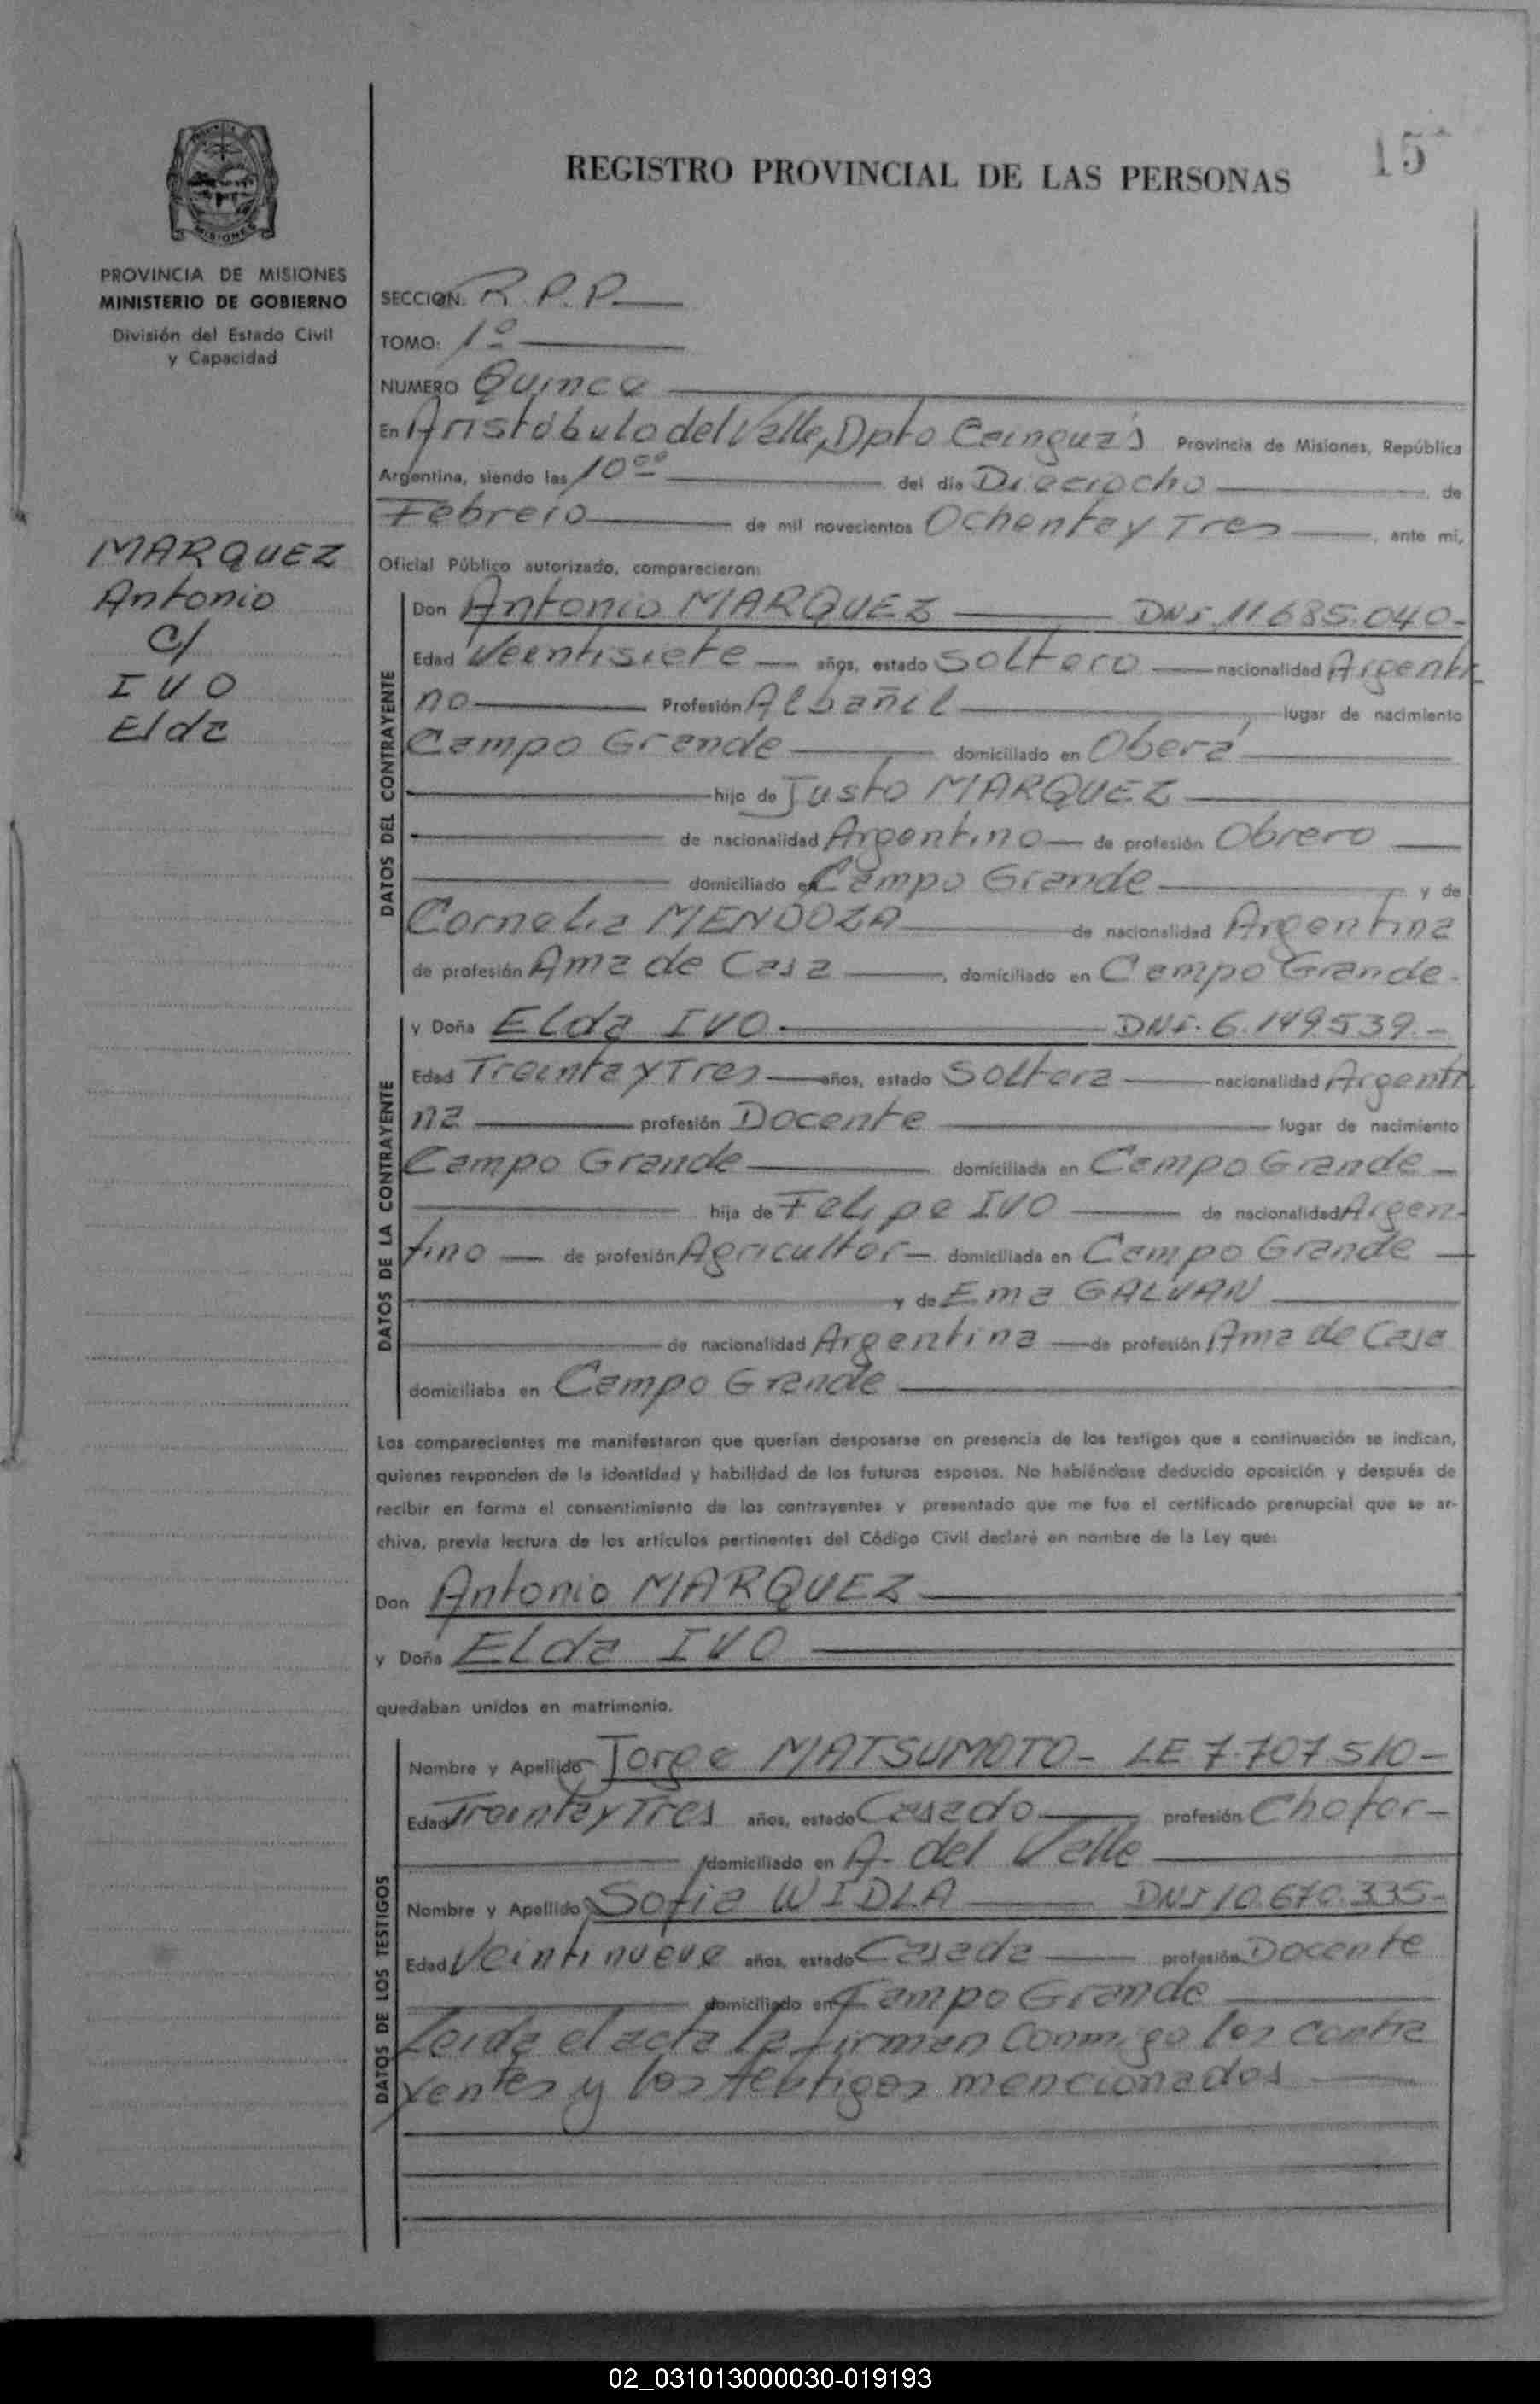 15
REGISTRO PROVINCIAL DE LAS PERSONAS
PROVINCIA DE MISIONES
MINISTERIO DE GOBIERNO
División del Estado Civil
y Capacidad
MARQUEZ
Antonio
c/
IVO
Elda
SECCION: R.P.P.
TOMO: 1º
NUMERO Quince
En Aristóbulo del Valle, Dpto Cainguás Provincia de Misiones, República
Argentina, siendo las 10ºº del día Dieciocho de
Febrero de mil novecientos Ochenta y Tres, ante mi,
Oficial Público autorizado, comparecieron:
DATOS DEL CONTRAYENTE
Don Antonio MARQUEZ DNI. 11.685.040-
Edad Veintisiete años, estado Soltero nacionalidad Argenti
no Profesión Albañil lugar de nacimiento
Campo Grande domiciliado en Oberá
hijo de Justo MARQUEZ
de nacionalidad Argentino de profesión Obrero
domiciliado en Campo Grande y de
Cornelia MENDOZA de nacionalidad Argentina
de profesión Ama de Casa, domiciliado en Campo Grande.
DATOS DE LA CONTRAYENTE
y Doña Elda IVO DNI. 6.149.539.-
Edad Treinta y Tres años, estado Soltera nacionalidad Argenti
na profesión Docente lugar de nacimiento
Campo Grande domiciliada en Campo Grande
hija de Felipe IVO de nacionalidad Argen-
tino de profesión Agricultor domiciliada en Campo Grande
y de Ema GALVAN
de nacionalidad Argentina de profesión Ama de Casa
domiciliaba en Campo Grande
Los comparecientes me manifestaron que querían desposarse en presencia de los testigos que a continuación se indican,
quienes responden de la identidad y habilidad de los futuros esposos. No habiéndose deducido oposición y después de
recibir en forma el consentimiento de los contrayentes y presentado que me fue el certificado prenupcial que se ar-
chiva, previa lectura de los artículos pertinentes del Código Civil declaré en nombre de la Ley que:
Don Antonio MARQUEZ
y Doña Elda IVO
quedaban unidos en matrimonio.
DATOS DE LOS TESTIGOS
Nombre y Apellido Jorge MATSUMOTO- LE 7.707.510-
Edad Treinta y Tres años, estado Casado profesión Chofer-
domiciliado en A. del Valle
Nombre y Apellido Sofia WIDLA DNI 10.670.335-
Edad Veintinueve años, estado Casada profesión Docente
domiciliado en Campo Grande
Leida el acta la firman conmigo los contra
yentes y los testigos mencionados
02_031013000030-019193